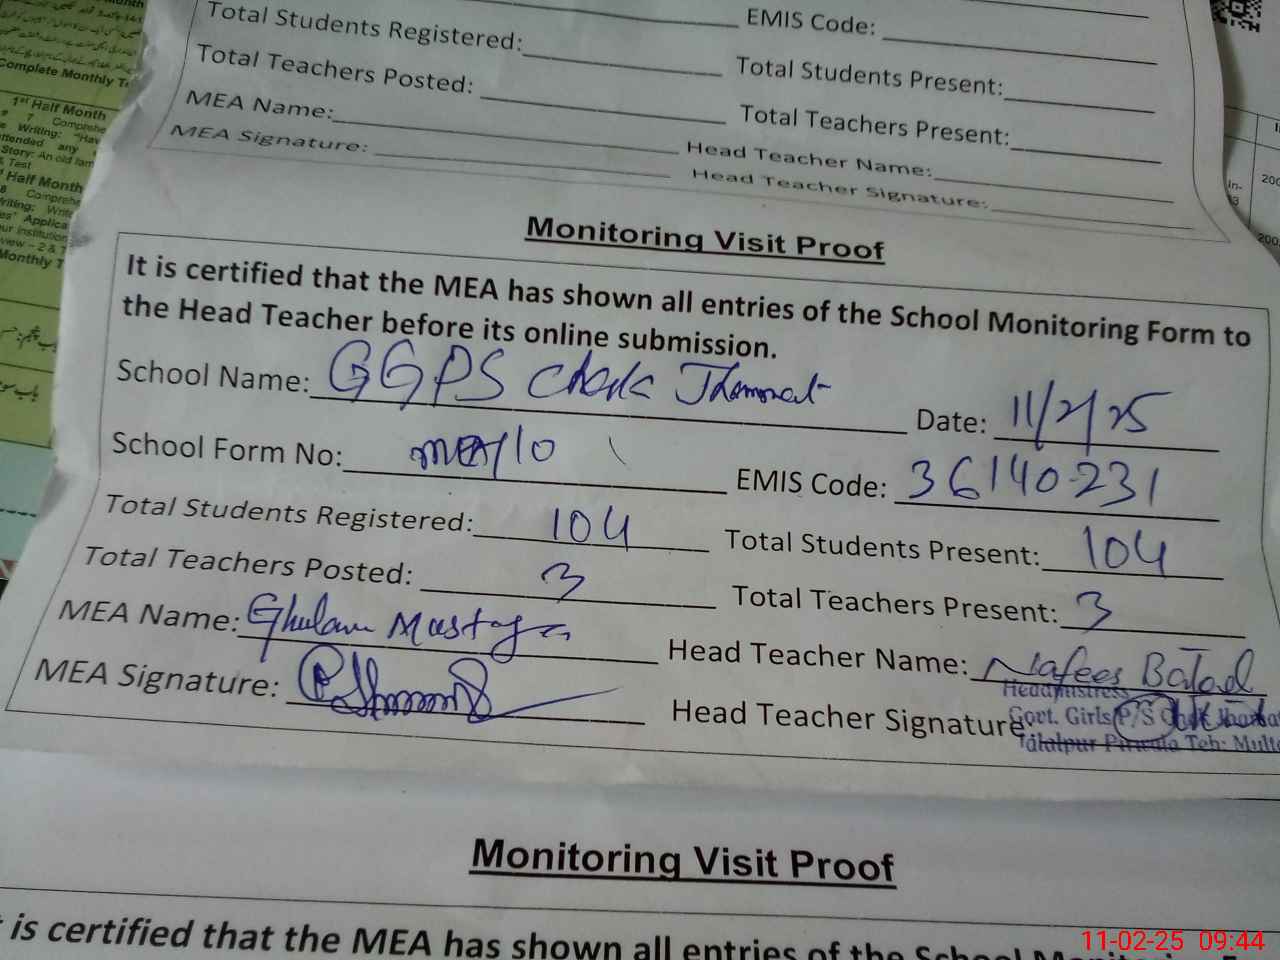 Total Students Registered:
EMIS Code:
Total Teachers Posted:
Total Students Present:
MEA Name:
Total Teachers Present:
MEA Signature:
Head Teacher Name:
Head Teacher Signature:
Complete Monthly
1st Half Month
7 Comprehe
Writing: "Hav
ttended any
Story: An old
& Test
Half Month
8 Comprehe
Applica
ur institution
view – 2 &
Monthly T
In-
200
200,
Monitoring Visit Proof
It is certified that the MEA has shown all entries of the School Monitoring Form to
the Head Teacher before its online submission.
School Name: GGPS Chak
Date: 11/2/25
School Form No: MEA/10
EMIS Code: 36140231
Total Students Registered: 104
Total Students Present: 104
Total Teachers Posted: 3
Total Teachers Present: 3
MEA Name: Ghulam Mustafa
Head Teacher Name: Nafees Batool
MEA Signature:
Head Teacher Signature:
Headmistress
Govt. Girls P/S
Jalalpur Pirwala Teh: Mult
Monitoring Visit Proof
is certified that the MEA has shown all entries of the School Monitoring
11-02-25 09:44